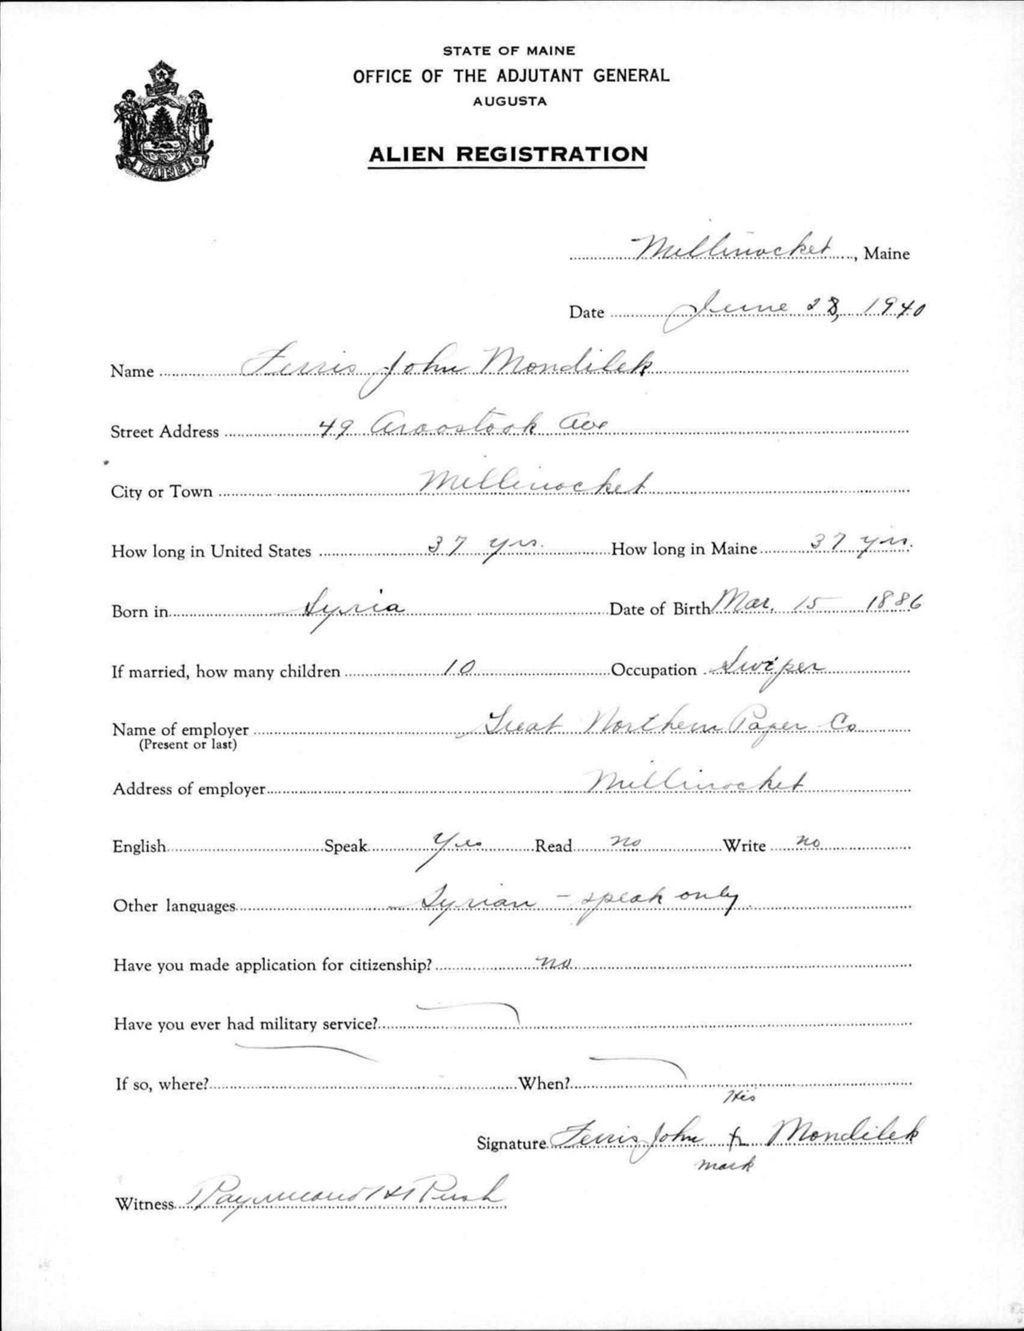 STATE OF MAINE
OFFICE OF THE ADJUTANT GENERAL
AUGUSTA
ALIEN REGISTRATION
MAINE
Millinocket, Maine
Date June 28, 1940
Name Ferris John Mondilek
Street Address 49 Aroostook Ave
City or Town Millinocket
How long in United States 37 yrs. How long in Maine 37 yrs.
Born in Syria Date of Birth Mar. 15 1886
If married, how many children 10 Occupation Swiper
Name of employer Great Northern Paper Co
(Present or last)
Address of employer Millinocket
English Speak Yes Read no Write no
Other languages Syrian - speak only
Have you made application for citizenship? no
Have you ever had military service?
If so, where? When?
His
Signature Ferris John x Mondilek
mark
Witness Raymond H Rush